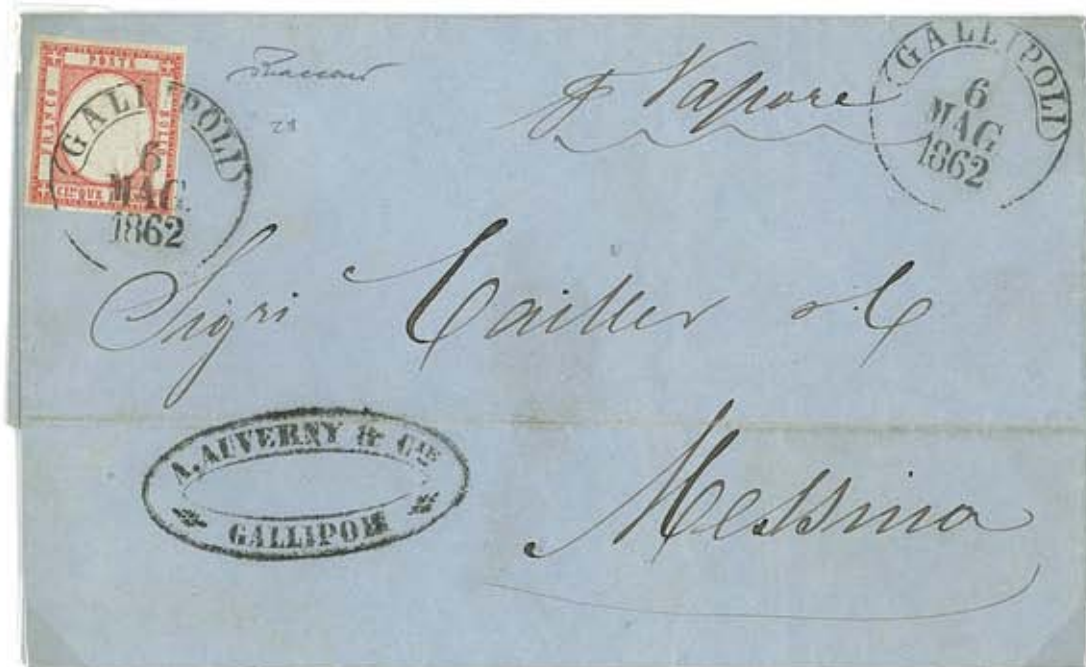 POSTA
FRANCO
BOLLO
CINQUE
GALLIPOLI
6
MAG
1862
28
p Vapore
GALLIPOLI
6
MAG
1862
Sigri Cailler & C
Messina
A. AUVERNY & CIE
GALLIPOLI